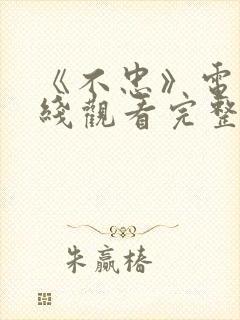 《不忠》電
綫觀看完整
朱贏椿